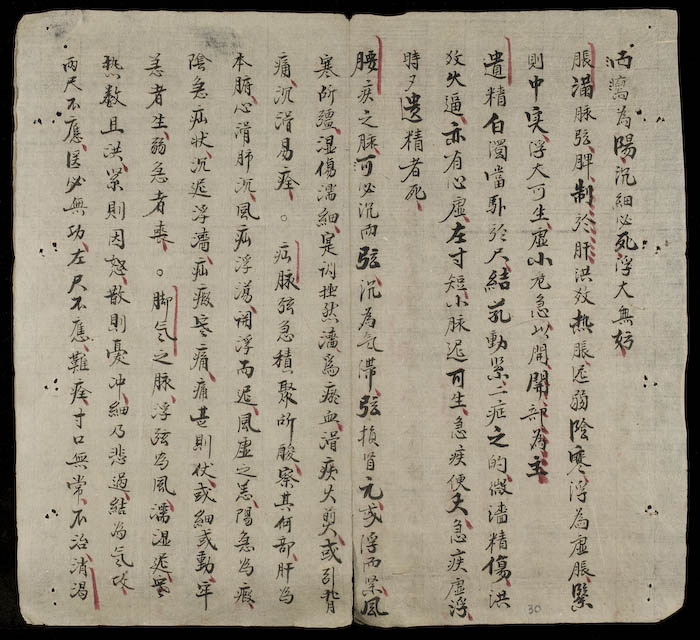 而濇為陽沉細必死浮大無妨
脹滿脉弦脾制於肝洪数热脹遲弱陰寒浮為虛脹緊
則中実浮大可生虛小危急以開開部為主
遺精白濁當馭於尺結芤動緊二症之的微濇精傷洪
数火逼亦有心虛左寸短小脉迟可生急疾便夭急疾虛浮
時夕遺精者死
腰疾之脉可必沉而弦沉為气滯弦損腎元或浮而緊風
寒所疆湿傷濡細寔訓挫然濇為瘀血滑疾火煎或引背
痛沉滑易痊。疝脉弦急積聚所酸察其何部肝為
本腑心滑肺沉風疝浮蕩関浮而迟風虛之恙陽急為瘕
陰急疝状沉迟浮濇疝瘕寒痛痛甚則伏或細或動牢
急者生弱急者喪。脚气之脉浮弦為風濡湿迟寒
热数且洪緊則因怒散則憂冲細乃悲過結為气攻
兩尺不應医必無功左尺不應難痊寸口無常不治消渴
30